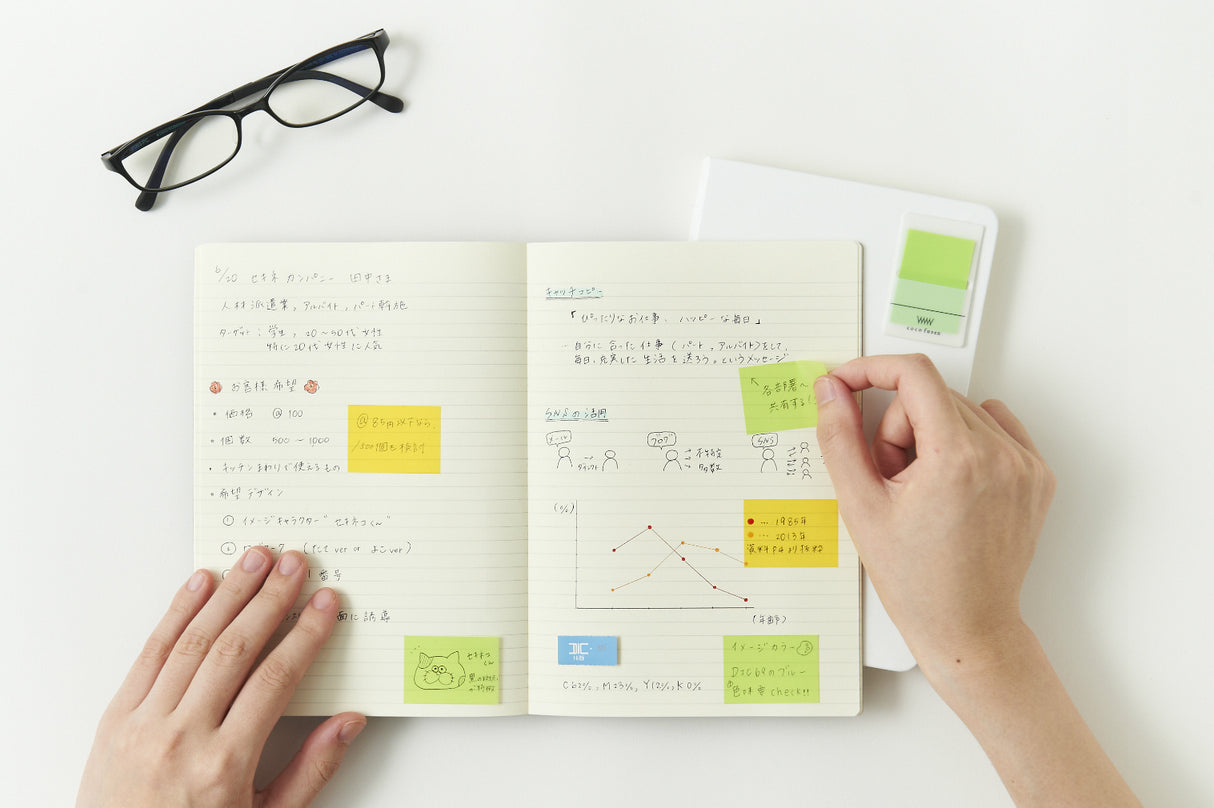 6/20 セキネカンパニー 田中さま
人材派遣業, アルバイト, パート斡旋
ターゲット: 学生, 20～50代女性
特に20代女性に人気
お客様希望
・価格 @100
・個数 500～1000
・キッチンまわりで使えるもの
・希望デザイン
① イメージキャラクター"セキネコくん"
② (たて ver or よこ ver)
番号
面に誘導
@85円以下なら、
1500個も検討
セキネコ
くん
キャッチコピー
「ぴったりなお仕事、ハッピーな毎日」
自分に合った仕事(パート, アルバイト)をして、
毎日、充実した生活を送ろう。というメッセージ
↖各部署へ
共有する!
SNSの活用
メール
ブログ
SNS
ダイレクト
不特定
多数
(%)
● … 1985年
● … 2013年
資料P4より抜粋
(年齢)
DIC
C62%, M=3%, Y12%, K0%
イメージカラー
DIC69のブルー
色味要check!!
coco fusen